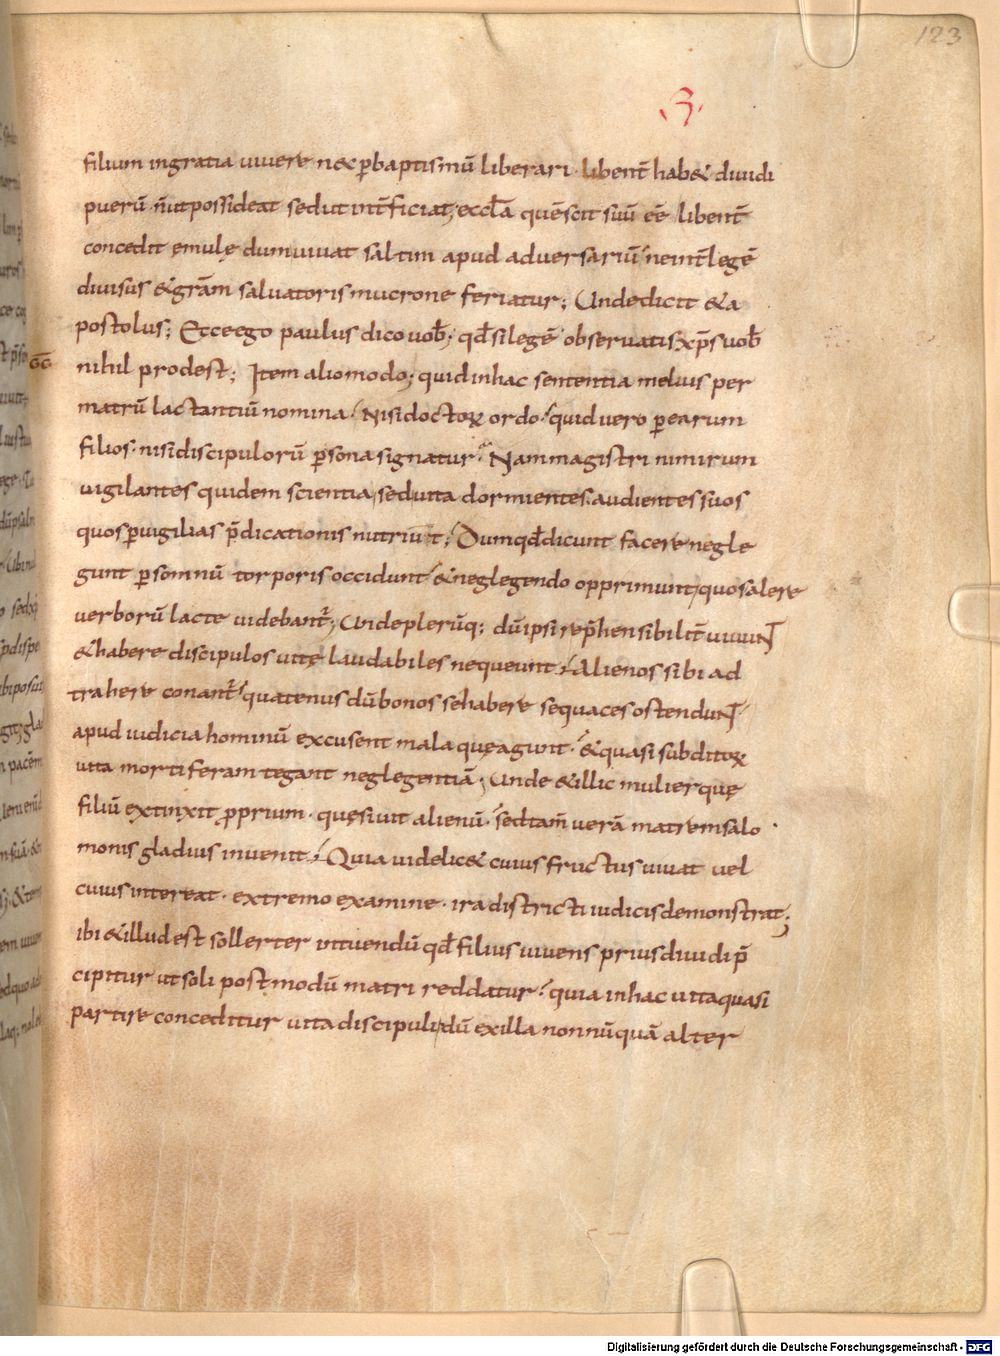 123
.3.
filium ingratia uiuere n& p̄baptismū liberari· libent̄ hab& diuidi
puerū· n̄ut possideat sedut int̄ficiat; eccl̄a quē scit suū eē libent̄
concedit emulę dum uiuat saltim apud aduersariū· ne int̄ legē
diuisus &gr̄am saluatoris mucrone feriatur; Unde dicit &a
postolus; Ecce ego paulus dico uob̄; qd̄ si legē obseruatis xp̄s uob̄
GG nihil prodest; Item alio modo; quid inhac sententia melius per
matrū lactantiū nomina· Nisi doctoꝝ ordo· quid uero p̄ earum
filios· nisi discipulorū p̄sona signatur· Nam magistri nimirum
uigilantes quidem scientia, sed uita dormientes· audientes suos
quos p̄uigilias p̄dicationis nutriunt; Dum qd̄ dicunt facere negle
gunt p̄ somnū torporis occidunt· &neglegendo opprimunt, quos alere
uerborū lacte uidebant̄; Unde plerūq; dū ipsi rep̄hensibilit̄ uiuunt
&habere discipulos uitę laudabiles nequeunt· Alienos sibi ad
trahere conant̄· quatenus dū bonos se habere sequaces ostendunt
apud iudicia hominū excusent mala quę agunt· &quasi subditoꝝ
uita mortiferam tegant neglegentiā; Unde &illic mulier quę
filiū extinxit p̄prium· quęsiuit alienū· sed tam̄ uerā matrem salo
monis gladius inuenit· Quia uidelic& cuius fructus uiuat uel
cuius intereat· extremo examine· ira districti iudicis demonstrat;
ibi &illud est sollerter intuendū qd̄ filius uiuens prius diuidi p̄
cipitur ut soli postmodū matri reddatur· quia inhac uita quasi
partire conceditur uita discipuli, dū exilla nonnūquā alter
Digitalisierung gefördert durch die Deutsche Forschungsgemeinschaft - DFG